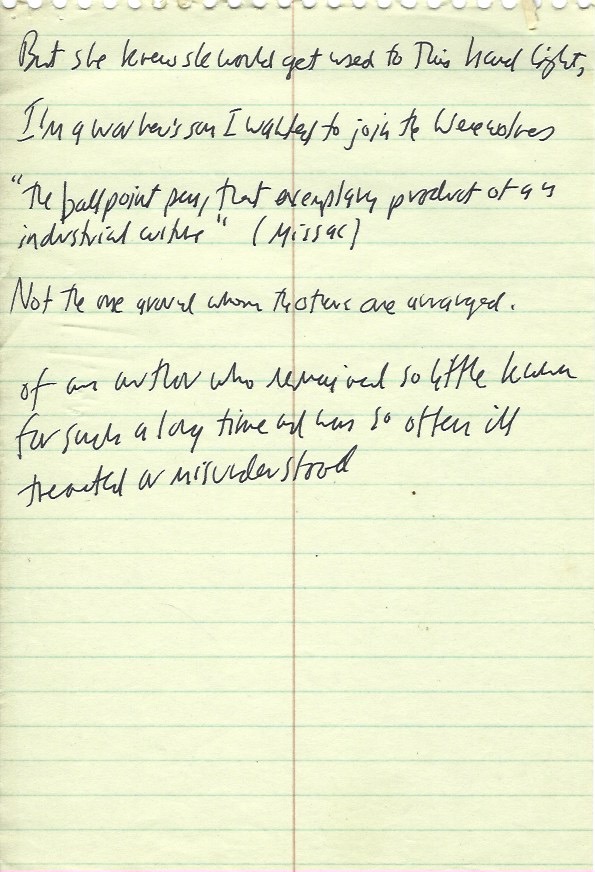 But she knew she would get used to this hard light,
I'm a worker's son I wanted to join the Werewolves
"the ballpoint pen, that exemplary product of an
industrial culture" (Missac)
Not the one around whom the others are arranged.
of an author who remained so little known
for such a long time and was so often ill
treated or misunderstood